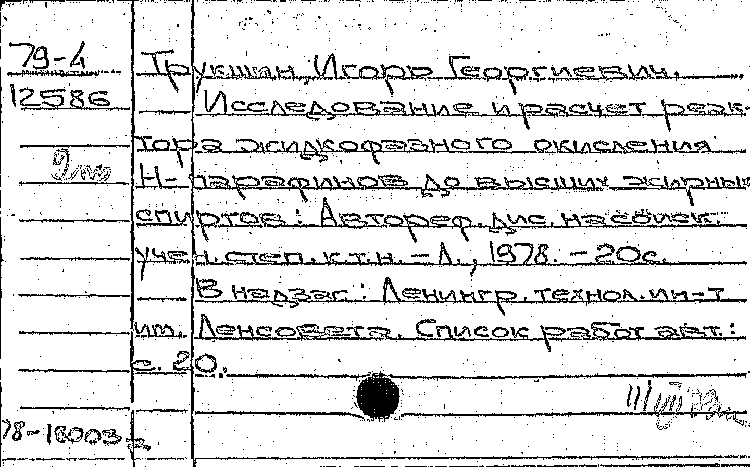 79-4
12586
Трукшин, Игорь Георгиевич.
Исследование и расчет реак-
тора жидкофазного окисления
Н-парафинов до высших жирных
спиртов: Автореф. дис. на соиск.
учен. степ. к.т.н. - Л., 1978. - 20с.
В надзаг.: Ленингр. технол. ин-т
им. Ленсовета. Список работ авт.:
с. 20.
78-16003